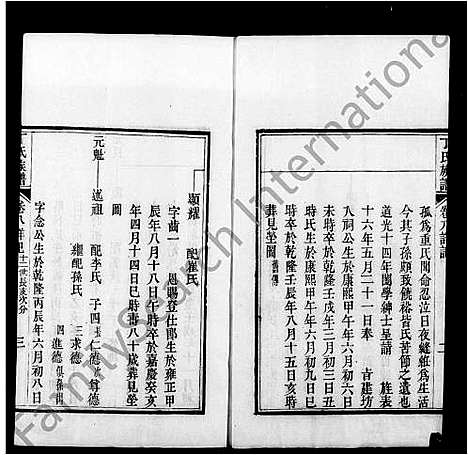 丁氏族譜
卷八詳誌
二
孤為重氏聞命忍泣日夜縫紝為生活
今其子孫頗致饒裕皆氏苦節之遺也
道光十四年闔學紳士呈請 旌表
十六年五月二十一日奉 旨建坊
入祠公生於康熙甲午年六月初六日
未時卒於乾隆壬戌年三月初三日丑
時氏生於康熙甲午年六月初九日巳
時卒於乾隆壬辰年八月十五日戌時
葬見塋圖
顯耀 配崔氏
字齒一 恩賜登仕郎生於雍正甲
辰年八月十八日午時卒於嘉慶癸亥
年四月十四日巳時壽八十歲葬見塋
圖
元魁 遙祖 配李氏 子四 長仁德 次尊德
繼配孫氏 三求德
四進德 俱孫出
字念公生於乾隆丙辰年六月初八日
丁氏族譜
三
FamilySearch International